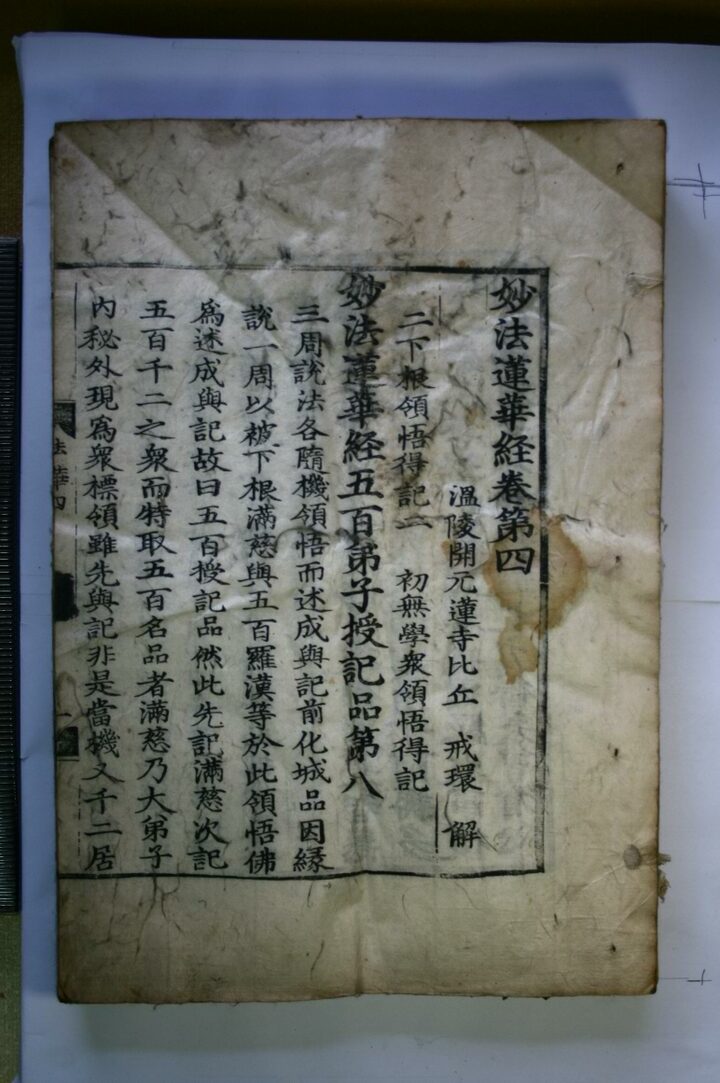 妙法蓮華経卷第四
溫陵開元蓮寺比丘 戒環 解
二下根領悟得記二 初無學衆領悟得記
妙法蓮華経五百弟子授記品第八
三周說法各隨機領悟而述成與記前化城品因緣
說一周以被下根滿慈與五百羅漢等於此領悟佛
爲述成與記故曰五百授記品然此先記滿慈次記
五百千二之衆而特取五百名品者滿慈乃大弟子
內秘外現爲衆標領雖先與記非是當機又千二居
法華四
一